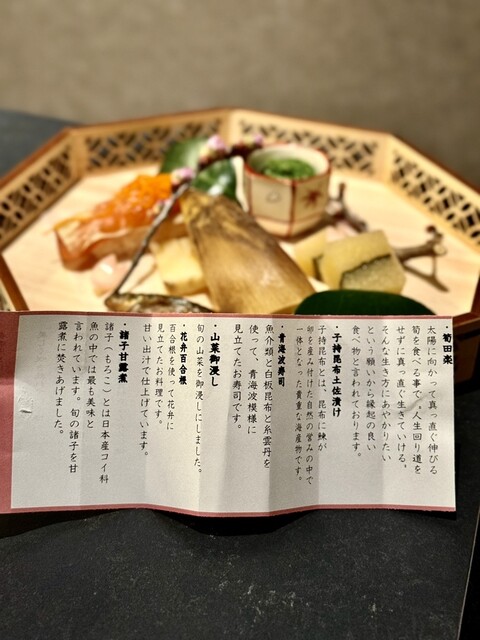 ・筍田楽
太陽に向かって真っ直ぐ伸びる
筍を食べる事で、人生回り道を
せずに真っ直ぐ生きていける。
そんな生き方にあやかりたい
という願いから縁起の良い
食べ物と言われております。
・子持昆布土佐漬け
子持昆布とは、昆布に鰊が
卵を産み付けた自然の営みの中で
一体となった貴重な海産物です。
・青海波寿司
魚介類と白板昆布と糸雲丹を
使って、青海波模様に
見立てたお寿司です。
・山菜御浸し
旬の山菜を御浸しにしました。
・花弁百合根
百合根を使って花弁に
見立てたお料理です。
甘い出汁で仕上げています。
・諸子甘露煮
諸子(もろこ)とは日本産コイ科
魚の中では最も美味と
言われています。旬の諸子を甘
露煮に焚きあげました。